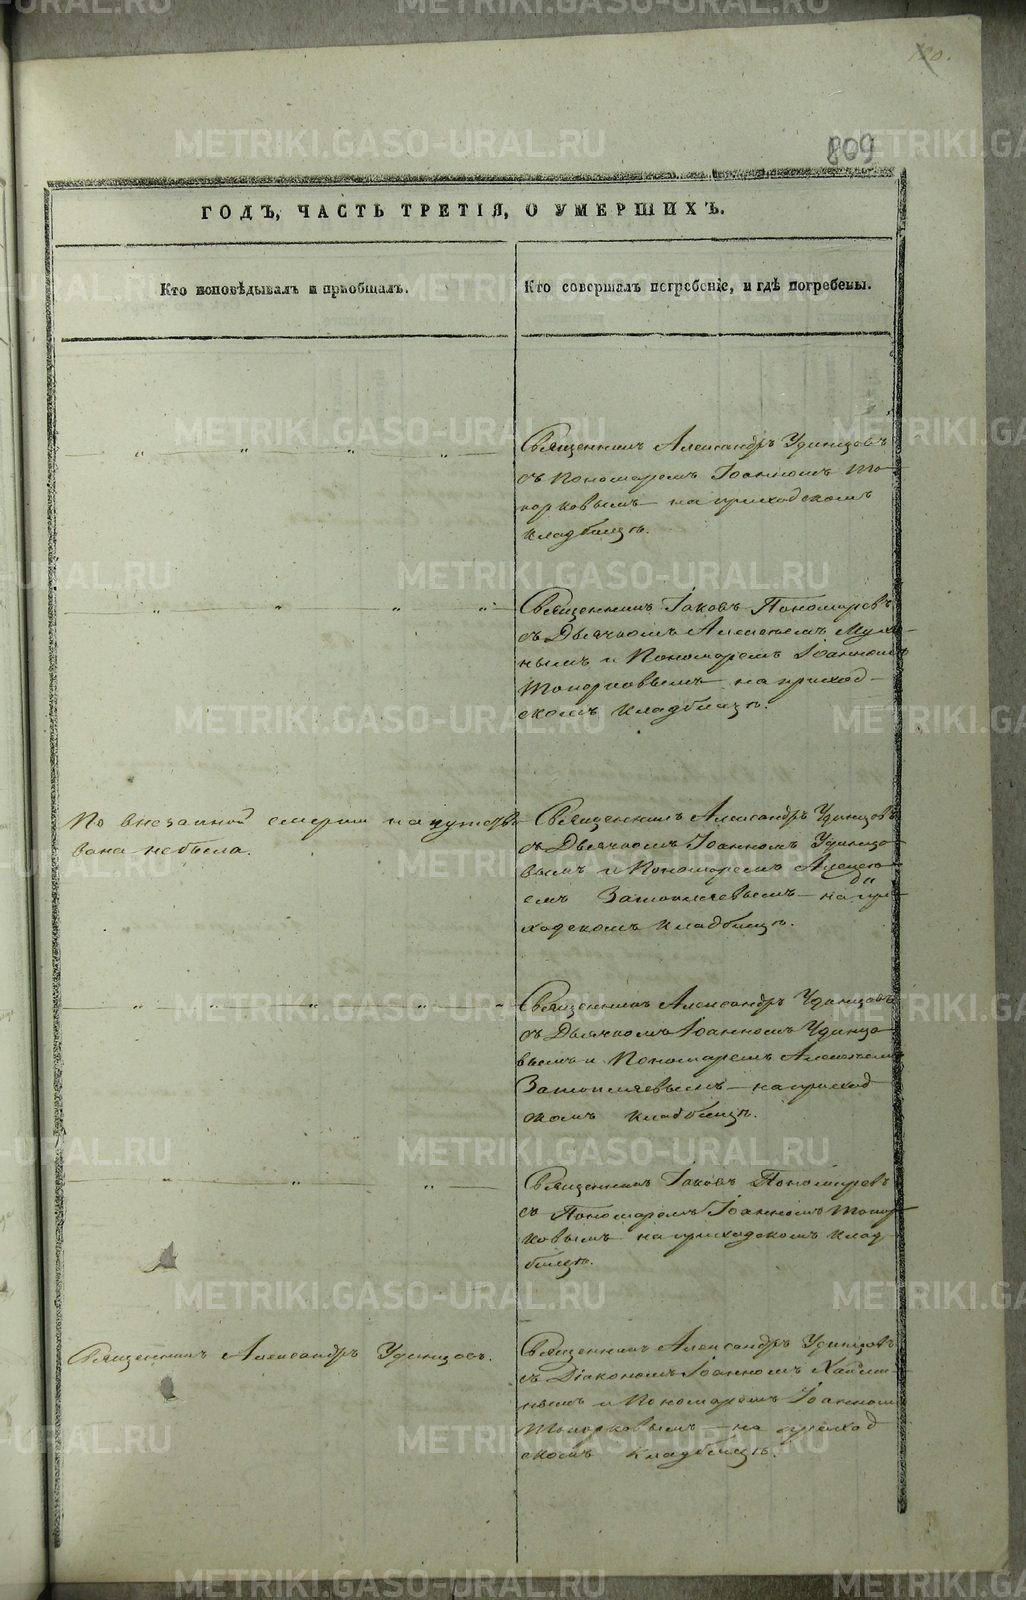 180.
809
ГОДЪ, ЧАСТЬ ТРЕТІЯ, О УМЕРШИХЪ.
Кто исповѣдывалъ и пріобщалъ.
Кто совершалъ погребеніе, и гдѣ погребены.
Священникъ Александръ Удинцовъ
съ Пономаремъ Іоанномъ То-
порковымъ на приходскомъ
кладбищѣ.
Священникъ Іаковъ Пономаревъ
съ Дьячкомъ Алексѣемъ
нымъ и Пономаремъ Іоанномъ
Топорковымъ на приход-
скомъ кладбищѣ.
По внезапной смерти напутств-
вана небыла.
Священникъ Александръ Удинцовъ
съ Дьячкомъ Іоанномъ Удинцо-
вымъ и Пономаремъ Алексѣ-
емъ Затопляевымъ на при-
ходскомъ кладбищѣ.
Священникъ Александръ Удинцовъ
съ Дьячкомъ Іоанномъ Удинцо-
вымъ и Пономаремъ Алексѣемъ
Затопляевымъ на приход
скомъ кладбищѣ.
Священникъ Іаковъ Пономаревъ
съ Пономаремъ Іоанномъ Топор-
ковымъ на приходскомъ клад-
бищѣ.
Священникъ Александръ Удинцовъ.
Священникъ Александръ Удинцовъ
съ Діакономъ Іоанномъ
нымъ и Пономаремъ Іоанномъ
Топорковымъ на приход
скомъ кладбищѣ.
METRIKI.GASO-URAL.RU